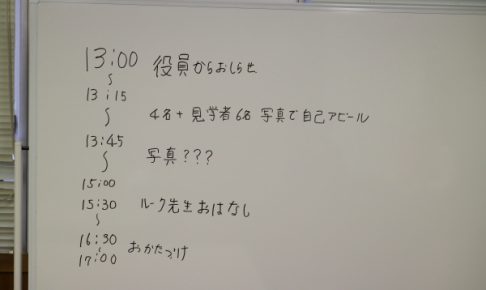 13:00 役員からおしらせ
〜
13:15
〜 4名+見学者6名 写真で自己アピール
13:45
〜 写真???
15:00
15:30 ルーク先生おはなし
〜
16:30 おかたづけ
〜
17:00